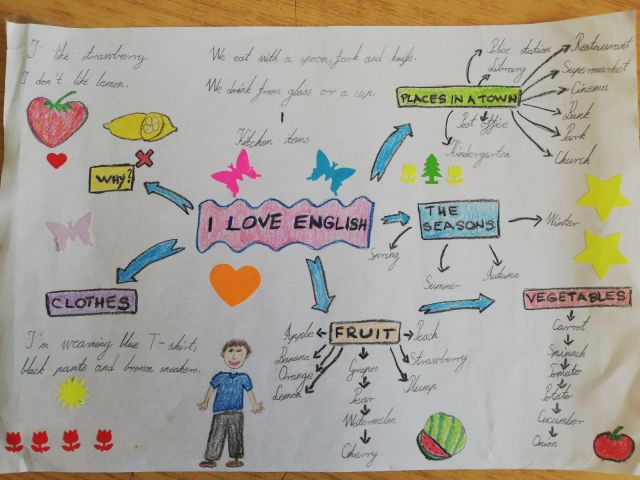 I like strawberry.
I don't like lemon.
We eat with a spoon, fork and knife.
We drink from glass or a cup.
Kitchen items
WHY?
I LOVE ENGLISH
PLACES IN A TOWN
Police station
Library
Restaurant
Supermarket
Cinema
Park
Church
Post office
Kindergarten
THE SEASONS
Spring
Summer
Autumn
Winter
CLOTHES
I'm wearning blue T-shirt,
black pants and brown sneakers.
FRUIT
Apple
Banana
Orange
Lemon
Grapes
Pear
Watermelon
Cherry
Peach
Strawberry
Plump
VEGETABLES
Carrot
Spineck
Tomato
Potato
Cucumber
Onion